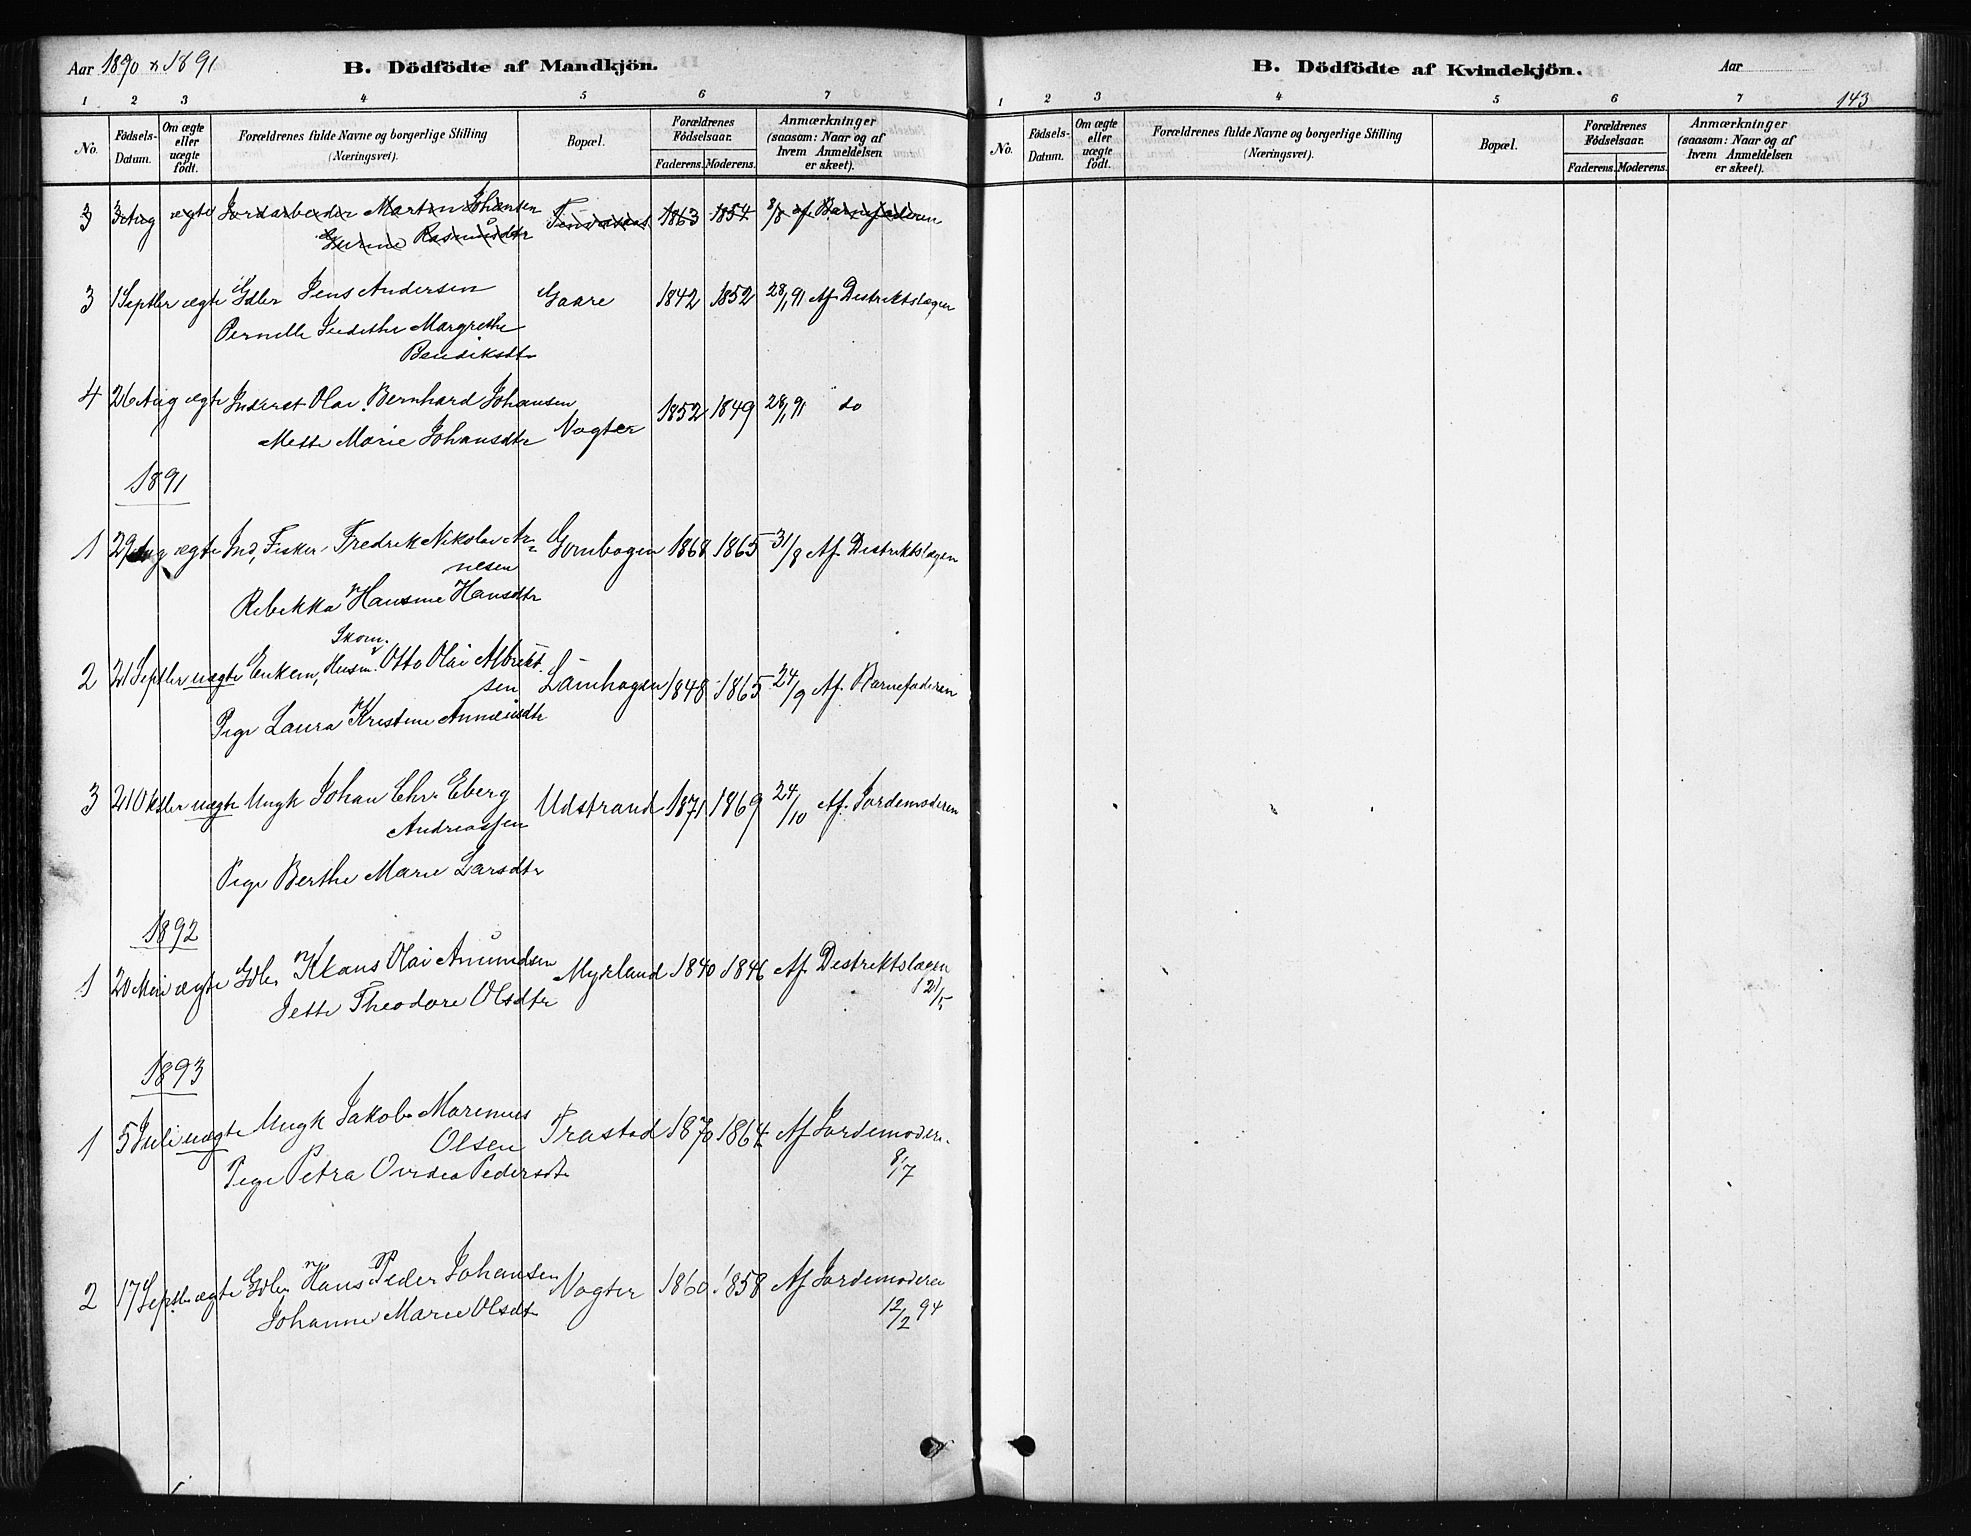 Aar 1890 & 1891
B. Dödfödte af Mandkjön.
1 2 3 4 5 6 7
No.
Födsels-Datum.
Om ægte eller uægte födt.
Forældrenes fulde Navne og borgerlige Stilling (Næringsvei).
Bopæl.
Forældrenes Födselsaar.
Faderens. Moderens.
Anmærkninger (saasom: Naar og af hvem Anmeldelsen er skeet).
3 3 Aug ægte Jordarbeider Martin Johansen 1863 1854 8/8 af Barnefaderen
Rasmusdtr
3 1 Septbr ægte Gdbr Jens Andersen Gaare 1842 1852 28/1 91 Af Distriktslægen
Pernille Judithe Margrethe
Bendiksdtr
4 26 Aug ægte Inderst Olai Bernhard Johansen 1852 1849 28/1 91 do
Mette Marie Johansdtr Vogter
1891
1 29 Aug ægte Ind, Fisker Fredrik Nikolai Ar= Gombogen 1868 1865 31/8 Af Distriktslægen
nesen
Rebekka Hansine Hansdtr
Skom.
2 21 Septbr uægte Enkem, Husm. Otto Olai Albrikt- Lamhagen 1848 1865 24/9 Af Barnefaderen
sen
Pige Laura Kristine
3 21 Oktbr uægte Ungk Johan Chr. Eberg Udstrand 1871 1869 24/10 Af Jordemoderen
Andreassen
Pige Berthe Marie Larsdtr
1892
1 20 Mai ægte Gdbr Klaus Olai Amundsen Myrland 1840 1846 Af Distriktslægen
Jette Theodore Olsdtr 21/5
1893
1 5 Juli uægte Ungk Jakob Marinius Trastad 1870 1864 Af Jordemoderen
Olsen
Pige Petra Ovidea Pedersdtr 8/7
2 17 Septbr ægte Gdbr Hans Peder Johansen Vogter 1860 1858 Af Jordemoderen
Johanne Marie Olsdtr 12/2 94
B. Dödfödte af Kvindekjön.
Aar
1 2 3 4 5 6 7 143
No.
Födsels-Datum.
Om ægte eller uægte födt.
Forældrenes fulde Navne og borgerlige Stilling (Næringsvei).
Bopæl.
Forældrenes Födselsaar.
Faderens. Moderens.
Anmærkninger (saasom: Naar og af hvem Anmeldelsen er skeet).